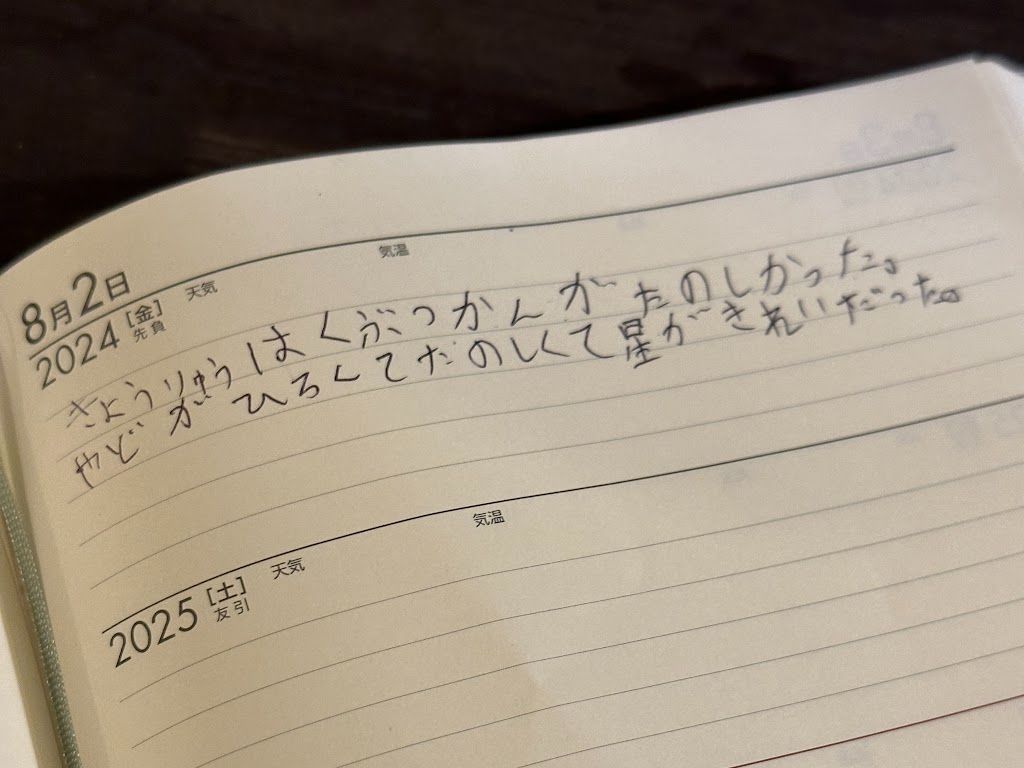 8月2日
2024 [金] 先負 天気 気温
きょうりゅうはくぶつかんがたのしかった。
やどがひろくてたのしくて星がきれいだった。
2025 [土] 友引 天気 気温